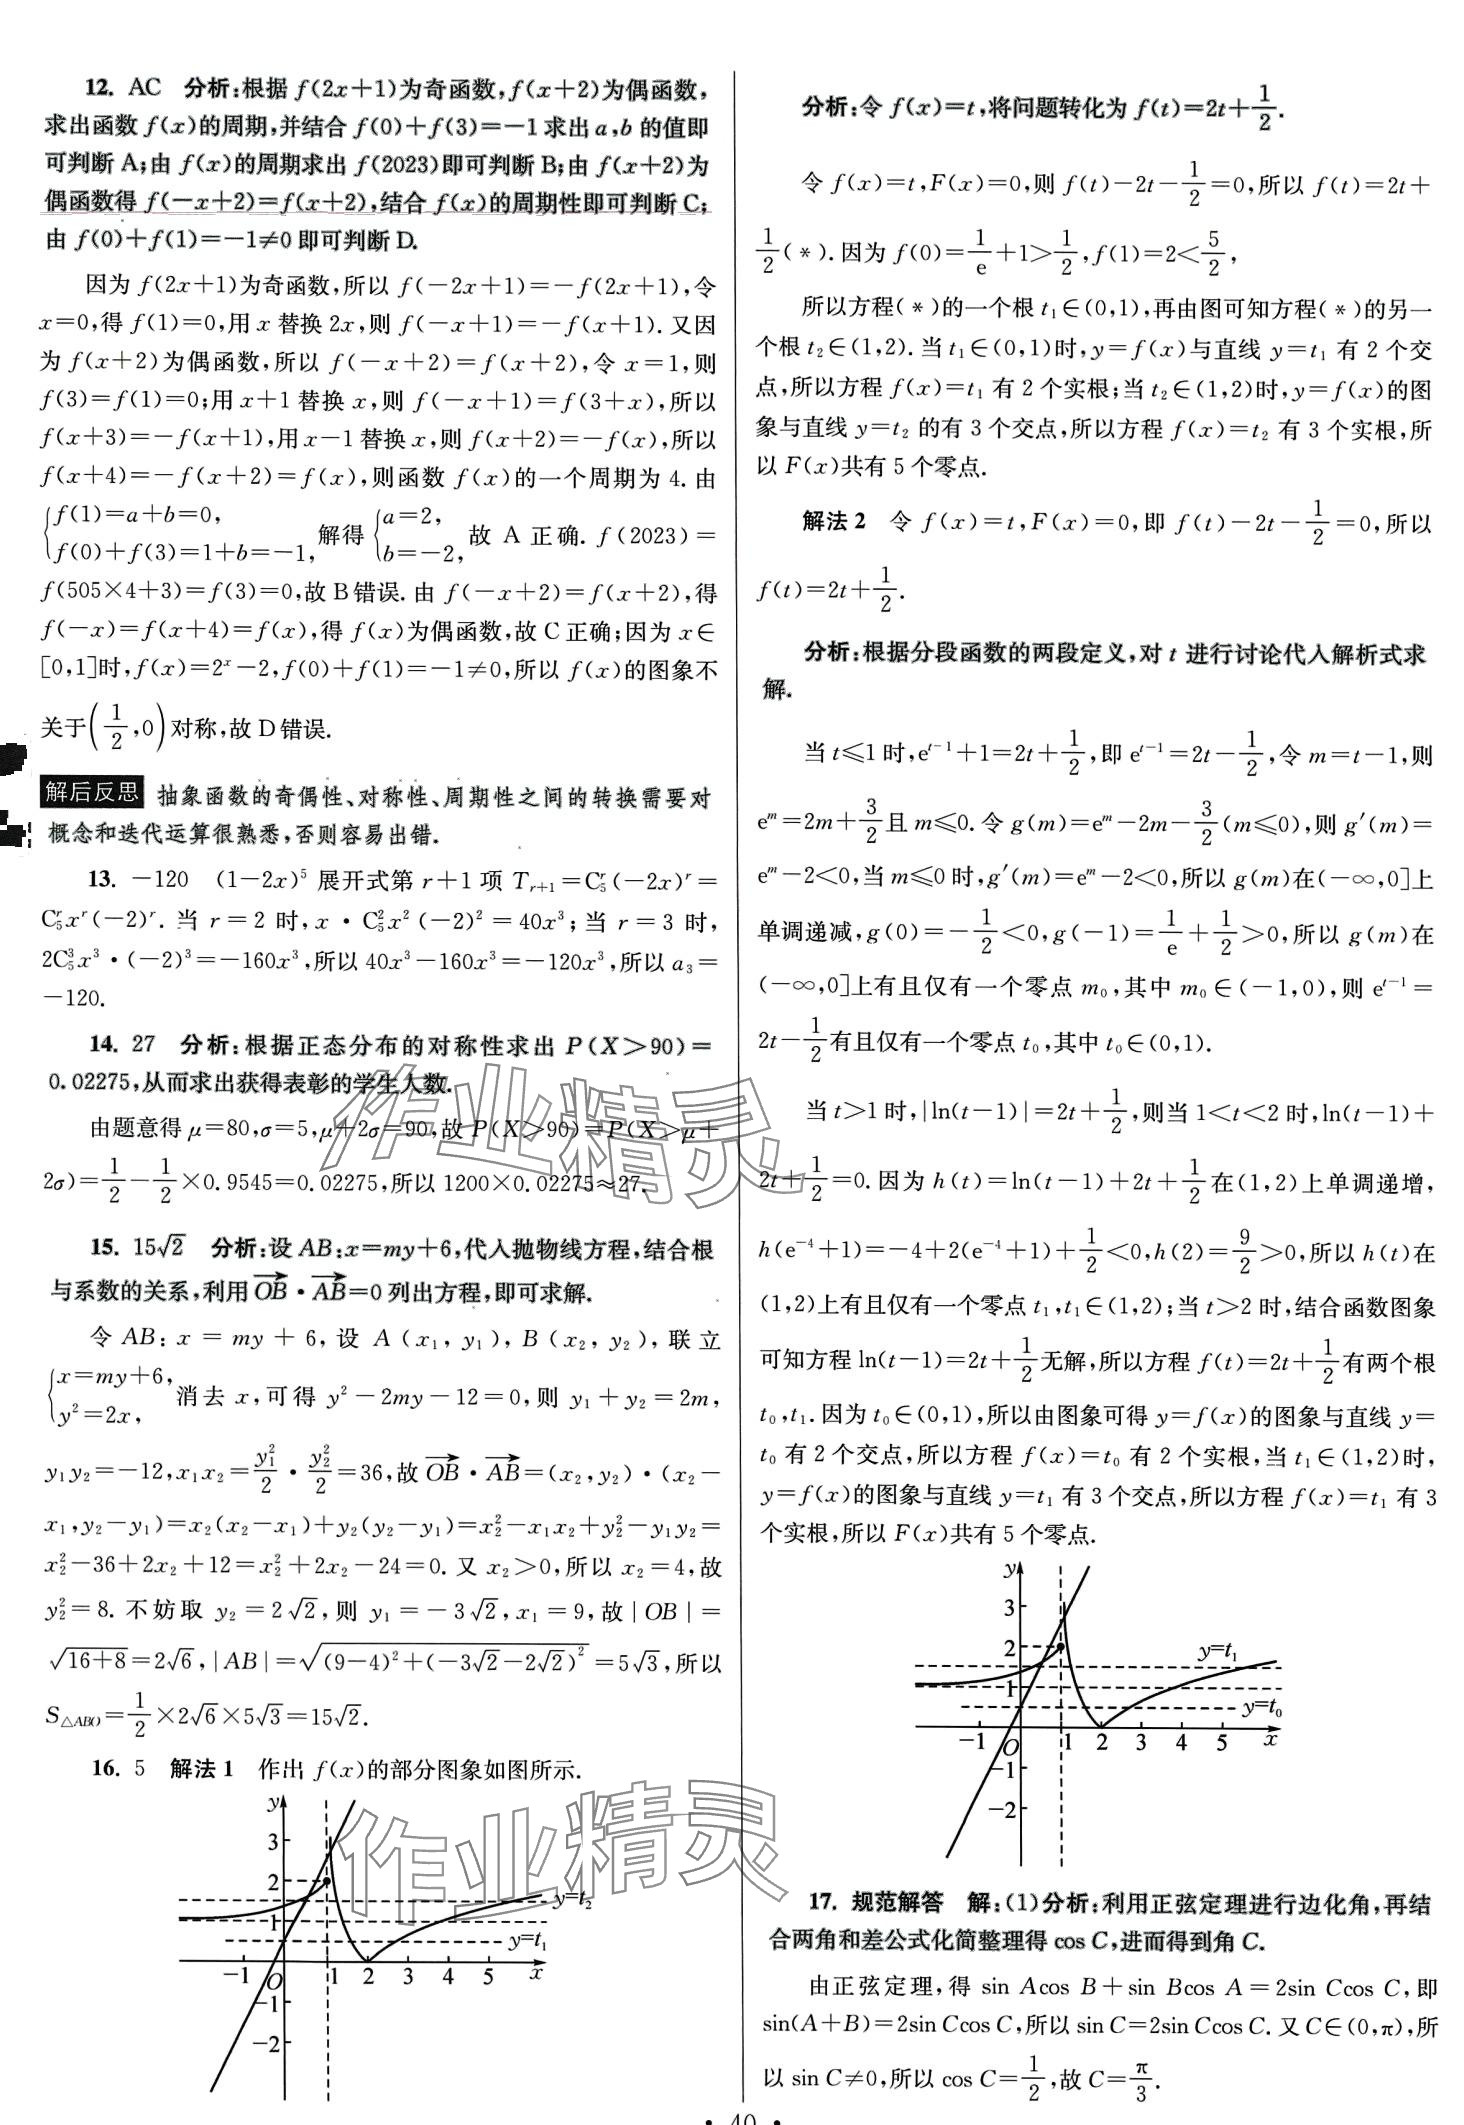 12. AC 分析:根据 f(2x+1)为奇函数,f(x+2)为偶函数,
求出函数 f(x)的周期,并结合 f(0)+f(3)=-1求出 a,b 的值即
可判断 A;由 f(x)的周期求出 f(2023)即可判断B;由 f(x+2)为
偶函数得 f(-x+2)=f(x+2),结合 f(x)的周期性即可判断C;
由 f(0)+f(1)=-1≠0即可判断D.
因为 f(2x+1)为奇函数,所以 f(-2x+1)=-f(2x+1),令
x=0,得 f(1)=0,用 x 替换 2x,则 f(-x+1)=-f(x+1). 又因
为 f(x+2)为偶函数,所以 f(-x+2)=f(x+2),令 x=1,则
f(3)=f(1)=0;用 x+1 替换 x,则 f(-x+1)=f(3+x),所以
f(x+3)=-f(x+1),用 x-1 替换 x,则 f(x+2)=-f(x),所以
f(x+4)=-f(x+2)=f(x),则函数 f(x)的一个周期为 4. 由
{f(1)=a+b=0, f(0)+f(3)=1+b=-1, 解得 {a=2, b=-2, 故 A 正确. f(2023)=
f(505×4+3)=f(3)=0,故 B 错误. 由 f(-x+2)=f(x+2),得
f(-x)=f(x+4)=f(x),得 f(x)为偶函数,故 C 正确;因为 x∈
[0,1]时,f(x)=2^x-2,f(0)+f(1)=-1≠0,所以 f(x)的图象不
关于(1/2,0)对称,故 D 错误.
解后反思 抽象函数的奇偶性、对称性、周期性之间的转换需要对
概念和迭代运算很熟悉,否则容易出错.
13. -120 (1-2x)^5 展开式第 r+1 项 T_{r+1}=C_5^r(-2x)^r=
C_5^r x^r(-2)^r. 当 r=2 时,x·C_5^2 x^2(-2)^2=40x^3;当 r=3 时,
2C_5^3 x^3·(-2)^3=-160x^3,所以 40x^3-160x^3=-120x^3,所以 a_3=
-120.
14. 27 分析:根据正态分布的对称性求出 P(X>90)=
0.02275,从而求出获得表彰的学生人数.
由题意得 μ=80,σ=5,μ+2σ=90,故 P(X>90)=P(X>μ+
2σ)=1/2-1/2×0.9545=0.02275,所以 1200×0.02275≈27.
15. 15√2 分析:设 AB:x=my+6,代入抛物线方程,结合根
与系数的关系,利用 →OB·→AB=0 列出方程,即可求解.
令 AB: x=my+6, 设 A(x₁,y₁), B(x₂,y₂), 联立
{x=my+6, y²=2x, 消去 x,可得 y²-2my-12=0,则 y₁+y₂=2m,
y₁y₂=-12,x₁x₂=y₁²/2·y₂²/2=36,故 →OB·→AB=(x₂,y₂)·(x₂-
x₁,y₂-y₁)=x₂(x₂-x₁)+y₂(y₂-y₁)=x₂²-x₁x₂+y₂²-y₁y₂=
x₂²-36+2x₂+12=x₂²+2x₂-24=0. 又 x₂>0,所以 x₂=4,故
y₂²=8. 不妨取 y₂=2√2,则 y₁=-3√2,x₁=9,故|OB|=
√(16+8)=2√6,|AB|=√((9-4)²+(-3√2-2√2)²)=5√3,所以
S△ABO=1/2×2√6×5√3=15√2.
16. 5 解法 1 作出 f(x)的部分图象如图所示.
y
3
2
1
y=t₂
y=t₁
-1 O 1 2 3 4 5 x
-1
-2
分析:令 f(x)=t,将问题转化为 f(t)=2t+1/2.
令 f(x)=t,F(x)=0,则 f(t)-2t-1/2=0,所以 f(t)=2t+
1/2(*). 因为 f(0)=1/e+1>1/2,f(1)=2<5/2,
所以方程(*)的一个根 t₁∈(0,1),再由图可知方程(*)的另一
个根 t₂∈(1,2). 当 t₁∈(0,1)时,y=f(x)与直线 y=t₁ 有 2 个交
点,所以方程 f(x)=t₁ 有 2 个实根;当 t₂∈(1,2)时,y=f(x)的图
象与直线 y=t₂ 的有 3 个交点,所以方程 f(x)=t₂ 有 3 个实根,所
以 F(x)共有 5 个零点.
解法 2 令 f(x)=t,F(x)=0,即 f(t)-2t-1/2=0,所以
f(t)=2t+1/2.
分析:根据分段函数的两段定义,对 t 进行讨论代入解析式求
解.
当 t≤1 时,e^{t-1}+1=2t+1/2,即 e^{t-1}=2t-1/2,令 m=t-1,则
e^m=2m+3/2且 m≤0. 令 g(m)=e^m-2m-3/2(m≤0),则 g′(m)=
e^m-2<0,当 m≤0 时,g′(m)=e^m-2<0,所以 g(m)在(-∞,0]上
单调递减,g(0)=-1/2<0,g(-1)=1/e+1/2>0,所以 g(m)在
(-∞,0]上有且仅有一个零点 m₀,其中 m₀∈(-1,0),则 e^{t-1}=
2t-1/2有且仅有一个零点 t₀,其中 t₀∈(0,1).
当 t>1 时,|ln(t-1)|=2t+1/2,则当 1<t<2 时,ln(t-1)+
2t+1/2=0. 因为 h(t)=ln(t-1)+2t+1/2在(1,2)上单调递增,
h(e^{-4}+1)=-4+2(e^{-4}+1)+1/2<0,h(2)=9/2>0,所以 h(t)在
(1,2)上有且仅有一个零点 t₁,t₁∈(1,2);当 t>2 时,结合函数图象
可知方程 ln(t-1)=2t+1/2无解,所以方程 f(t)=2t+1/2有两个根
t₀,t₁. 因为 t₀∈(0,1),所以由图象可得 y=f(x)的图象与直线 y=
t₀ 有 2 个交点,所以方程 f(x)=t₀ 有 2 个实根,当 t₁∈(1,2)时,
y=f(x)的图象与直线 y=t₁ 有 3 个交点,所以方程 f(x)=t₁ 有 3
个实根,所以 F(x)共有 5 个零点.
y
3
2
1
y=t₁
y=t₀
-1 O 1 2 3 4 5 x
-1
-2
17. 规范解答 解:(1)分析:利用正弦定理进行边化角,再结
合两角和差公式化简整理得 cos C,进而得到角 C.
由正弦定理,得 sin Acos B+sin Bcos A=2sin Ccos C,即
sin(A+B)=2sin Ccos C,所以 sin C=2sin Ccos C. 又 C∈(0,π),所
以 sin C≠0,所以 cos C=1/2,故 C=π/3.
· 40 ·
作业精灵
作业精灵